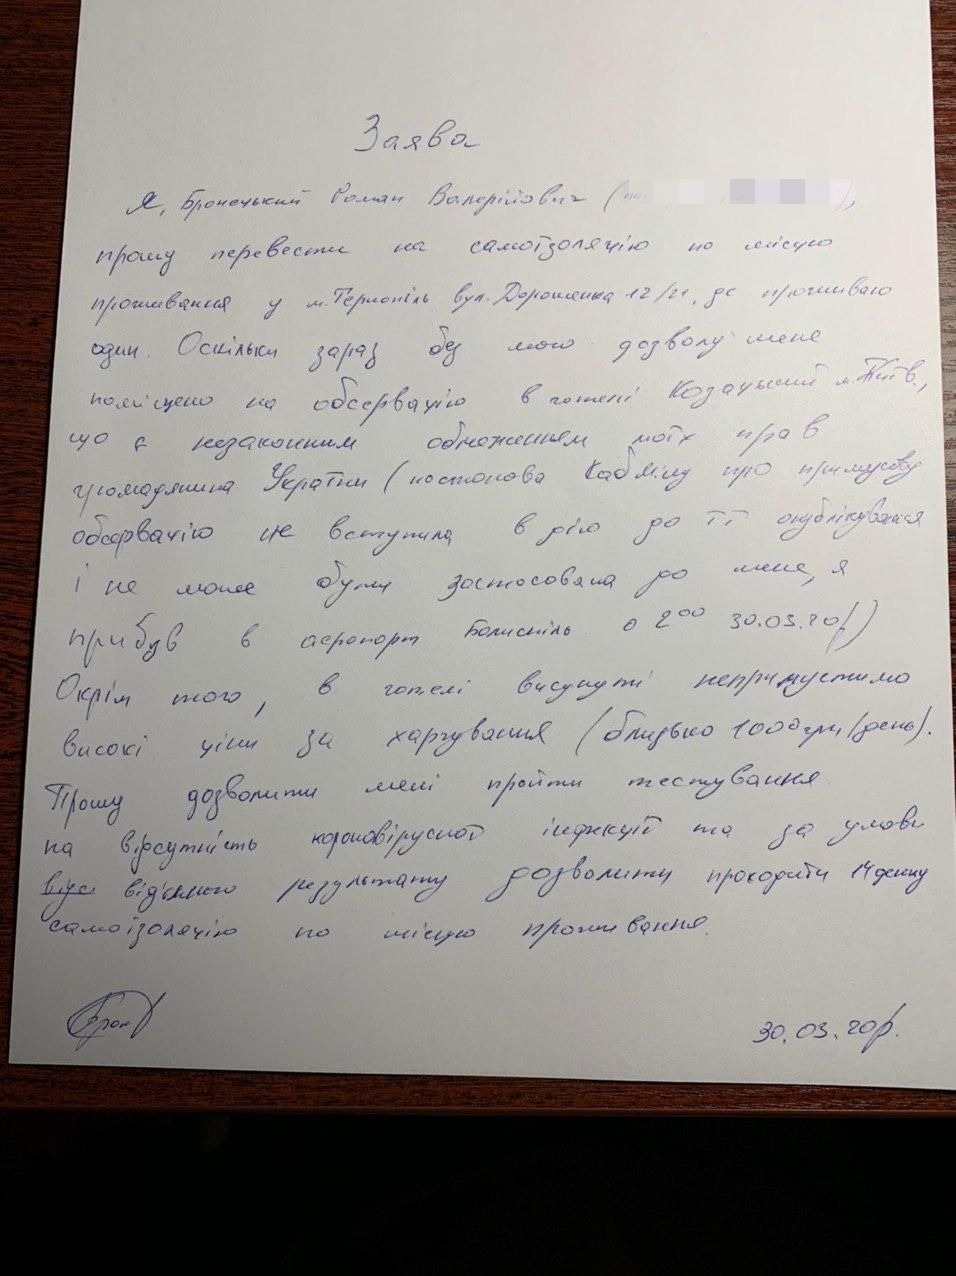 Заява
Я, Бронецький Роман Валерійович (
прошу перевести на самоізоляцію по місцю
проживання у м.Тернопіль вул.Дорошенка 12/21, де проживаю
один. Оскільки зараз без мого дозволу мене
поміщено на обсервацію в готелі Козацький м.Київ,
що є незаконним обмеженням моїх прав
громадянина України (постанова Кабміну про примусову
обсервацію не вступила в дію до її опублікування
і не може бути застосована до мене, я
прибув в аеропорт Бориспіль о 2⁰⁰ 30.03.20р)
Окрім того, в готелі висунуті неприпустимо
високі ціни за харчування (близько 1000грн/день).
Прошу дозволити мені пройти тестування
на відсутність короновірусної інфекції та за умови
від'ємного результату дозволити проходити 14 денну
самоізоляцію по місцю проживання.
30.03.20р.